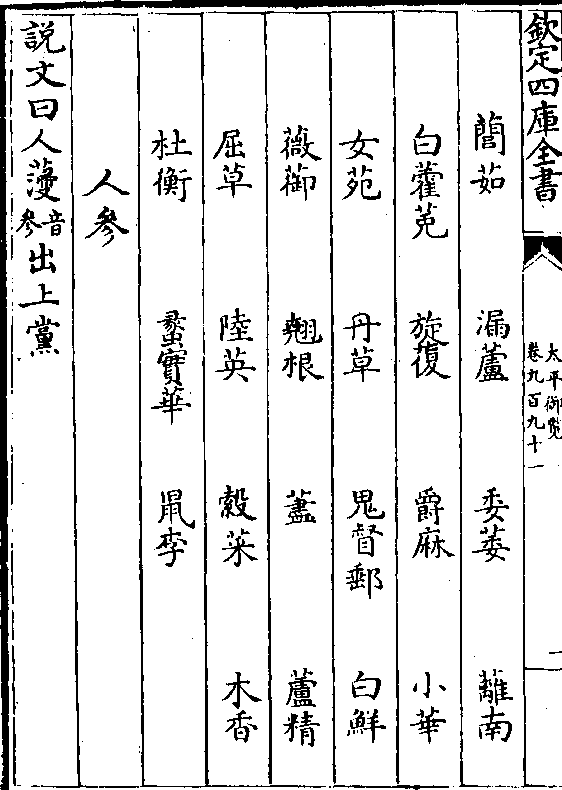 欽定四庫全書
太平御覽
卷九百九十一
二
藺茹 漏蘆 委萎 離南
白藿莵 旋復 爵麻 小華
女苑 丹草 鬼督郵 白鮮
薇銜 翹根 藎 蘆精
屈草 陸英 穀菜 木香
杜衡 蠡實華 鼠李
人參
說文曰人薓音參出上黨